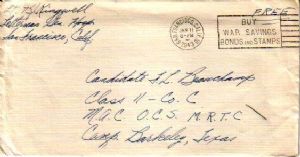 Kingwell
Letterman Gen Hosp
San Francisco, Calif
SAN FRANCISCO, CALIF.
JAN 11
1943
FREE
BUY
WAR SAVINGS
BONDS AND STAMPS
Candidate F L Beauchamp
Class 11 - Co. C
M.A.C. O.C.S. M.R.T.C
Camp Barkeley, Texas